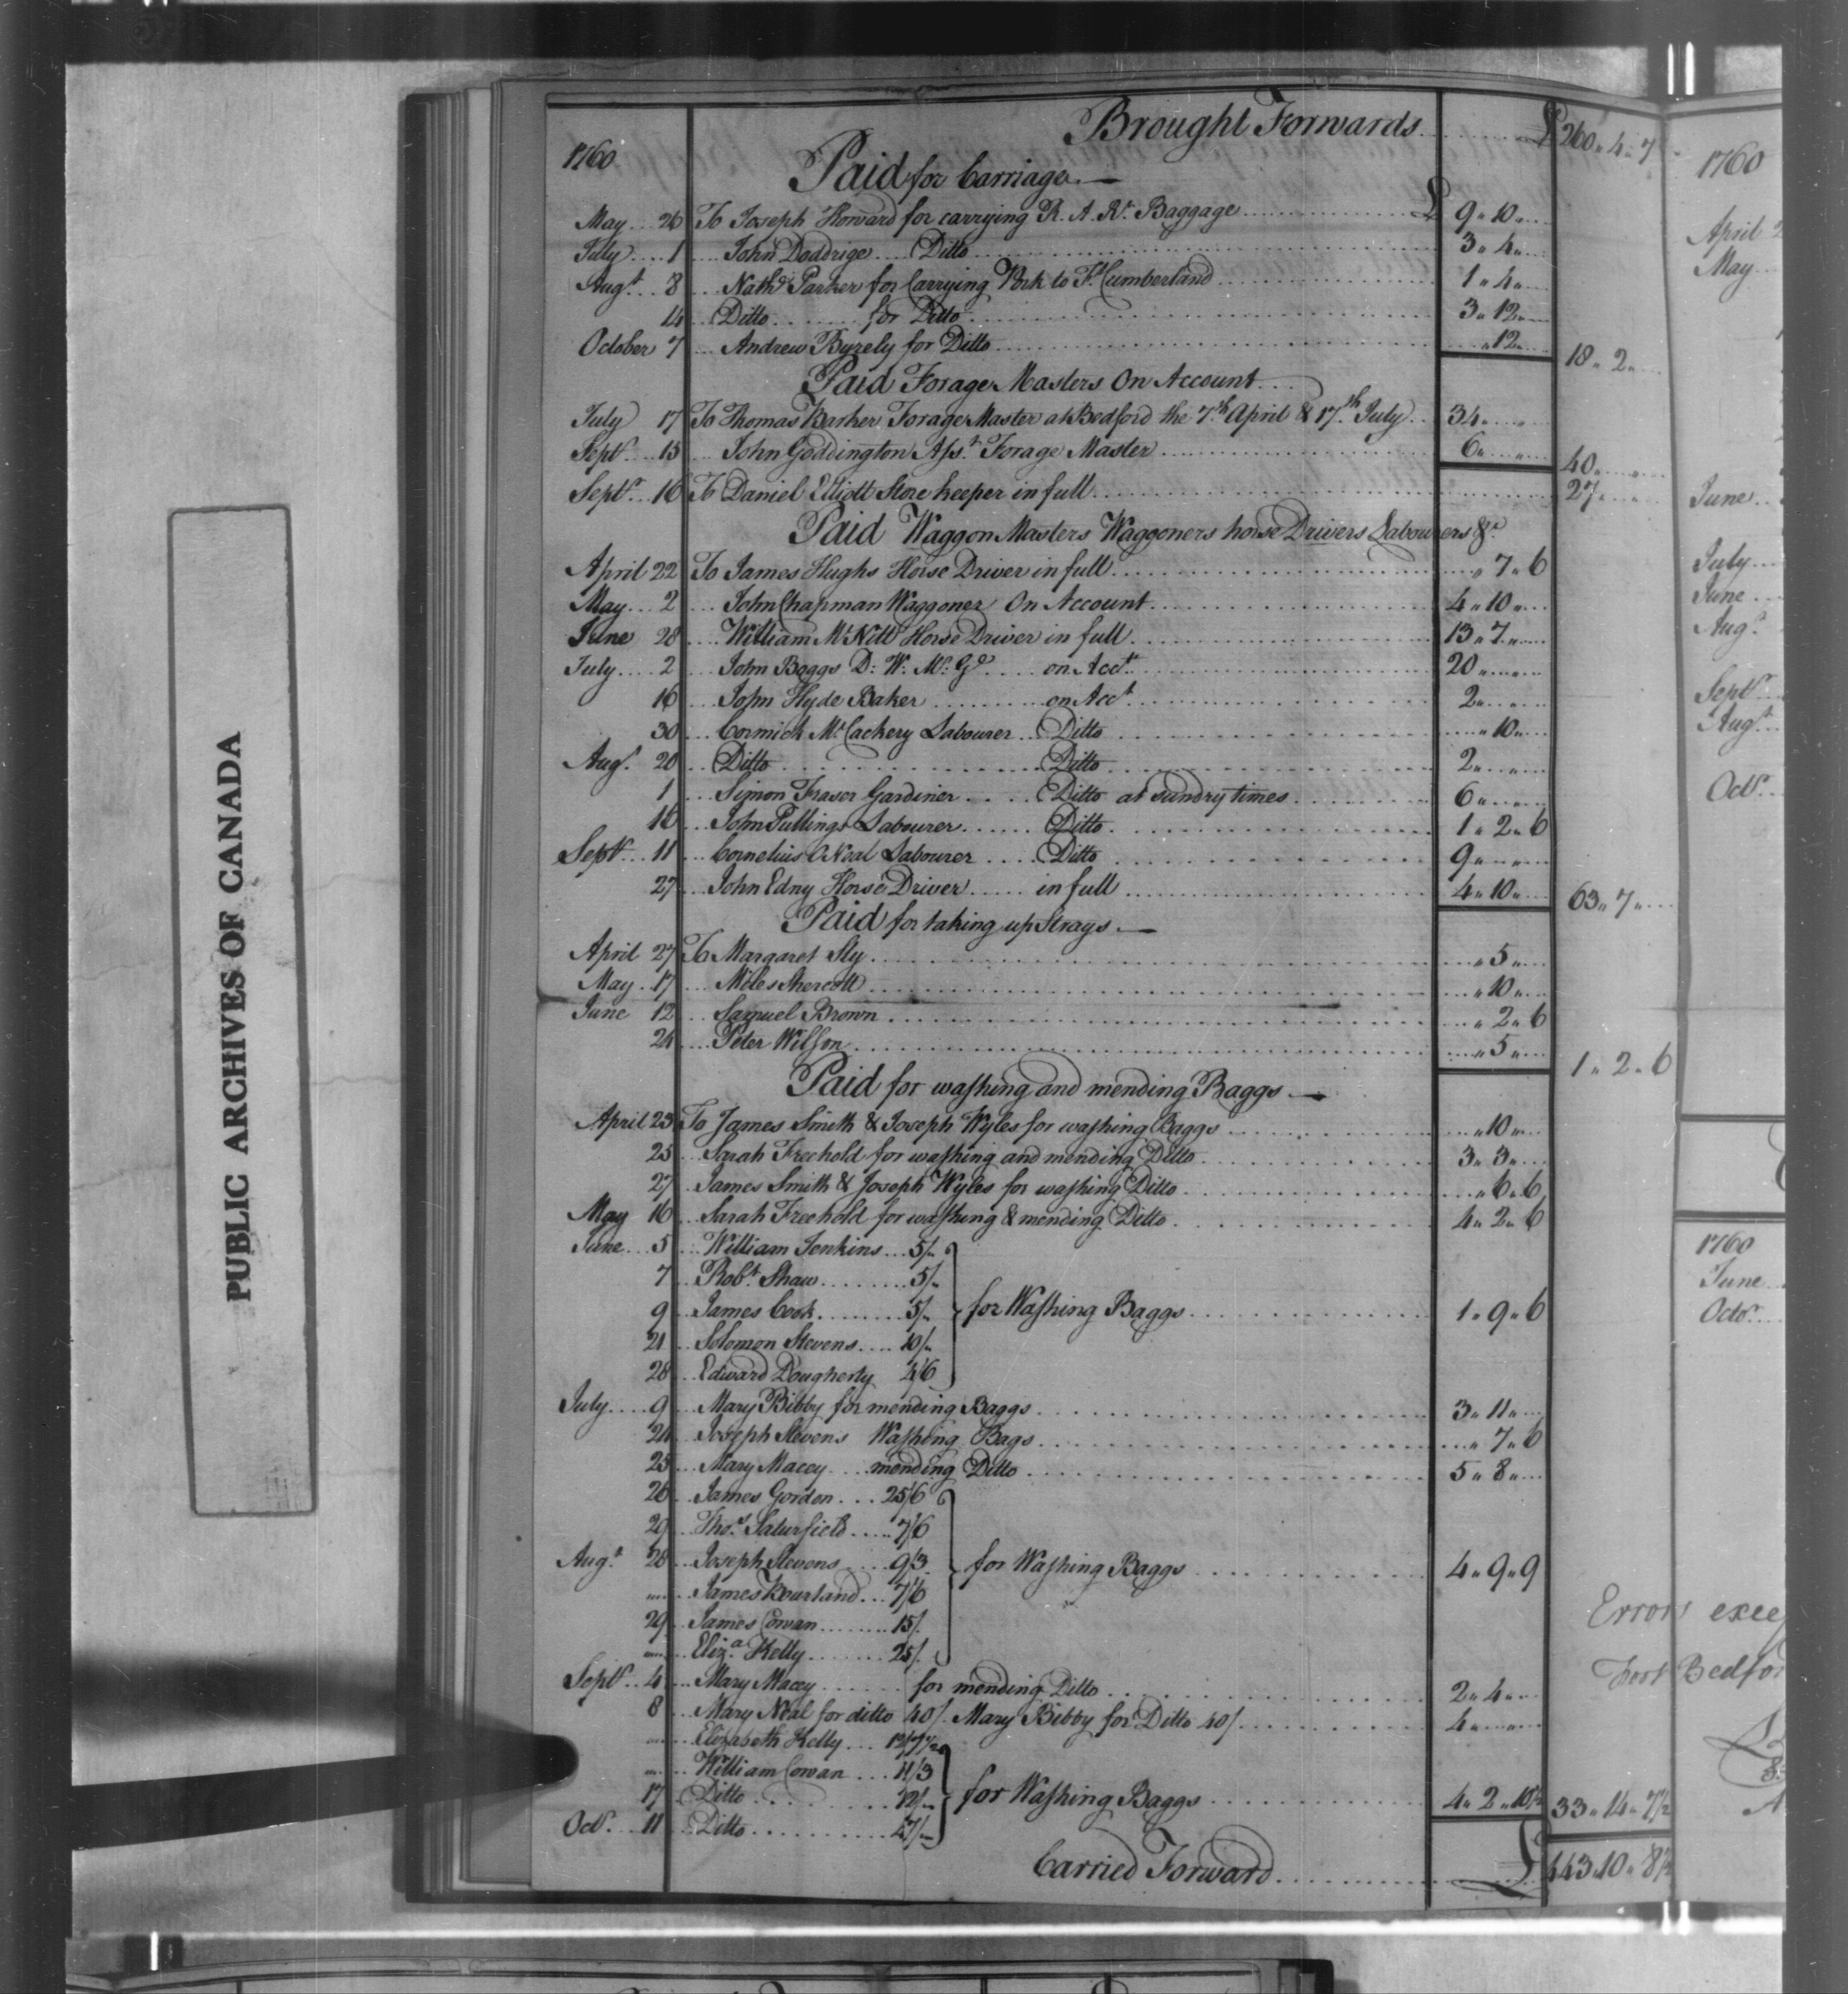 PUBLIC ARCHIVES OF CANADA
Brought Forwards £ 260 " 4 " 7
1760
Paid for Carriage
May 26 To Joseph Howard for carrying R. A. Rt. Baggage £ 9 " 10 "
July 1 John Doddrige Ditto 3 " 4 "
Augt. 8 Nathl. Parker for Carrying Pork to Ft. Cumberland 1 " 4 "
14 Ditto for Ditto 3 " 12 "
October 7 Andrew Byrely for Ditto " 12 " 18 " 2 "
Paid Forage Masters On Account
July 17 To Thomas Barker Forage Master at Bedford the 7th. April & 17th. July 34 " "
Septr. 15 John Goddington Asst. Forage Master 6 " " 40 " "
Septr. 16 To Daniel Elliott Store keeper in full 27 " "
Paid Waggon Masters Waggoners horse Drivers Labourers &c
April 22 To James Hughs Horse Driver in full " 7 " 6
May 2 John Chapman Waggoner On Account 4 " 10 "
June 28 William McNitt Horse Driver in full 13 " 7 "
July 2 John Boggs D: W: Mr. Gl. on Acct. 20 " "
16 John Hyde Baker on Acct. 2 " "
30 Cormick McCackery Labourer Ditto " 10 "
Augt. 20 Ditto Ditto 2 " "
1 Simon Fraser Gardiner Ditto at sundry times 6 " "
18 John Pullings Labourer Ditto 1 " 2 " 6
Septr. 11 Cornelius ONeal Labourer Ditto 9 " "
27 John Edny Horse Driver in full 4 " 10 " 63 " 7 "
Paid for taking up Strays
April 27 To Margaret Sly " 5 "
May 17 Miles " 10 "
June 12 Samuel Brown " 2 " 6
24 Peter Wilson " 5 " 1 " 2 " 6
Paid for washing and mending Baggs
April 23 To James Smith & Joseph Wyles for washing Baggs " 10 "
25 Sarah Freehold for washing and mending Ditto 3 " 3 "
27 James Smith & Joseph Wyles for washing Ditto " 6 " 6
May 16 Sarah Freehold for washing & mending Ditto 4 " 2 " 6
June 5 William Jenkins 5/"
7 Robt. Shaw 5/"
9 James Cook 5/" for Washing Baggs 1 " 9 " 6
21 Solomon Stevens 10/"
28 Edward Dougherty 4/6
July 9 Mary Bibby for mending Baggs 3 " 11 "
21 Joseph Stevens Washing Bags " 7 " 6
23 Mary Macey mending Ditto 5 " 8 "
26 James Gordon 25/6
29 Thos. Saturfield 7/6
Augt. 28 Joseph Stevens 9/3 for Washing Baggs 4 " 9 " 9
" James Kourland 7/6
29 James Cowan 15/
" Eliza. Kelly 25/
Septr. 4 Mary Macey for mending Ditto 2 " 4 "
8 Mary Neal for ditto 40/ Mary Bibby for Ditto 40/ 4 " "
" Elizabeth Kelly 12/7½
" William Cowan 11/3
17 Ditto 12/" for Washing Baggs 4 " 2 " 10½ 33 " 14 " 7½
Octr. 11 Ditto 47/"
Carried Forward £ 443 " 10 " 8½
1760
April 2
May
June
July
June
Augt.
Septr.
Augt.
Octr.
1760
June
Octr.
Errors excep
Fort Bedfor